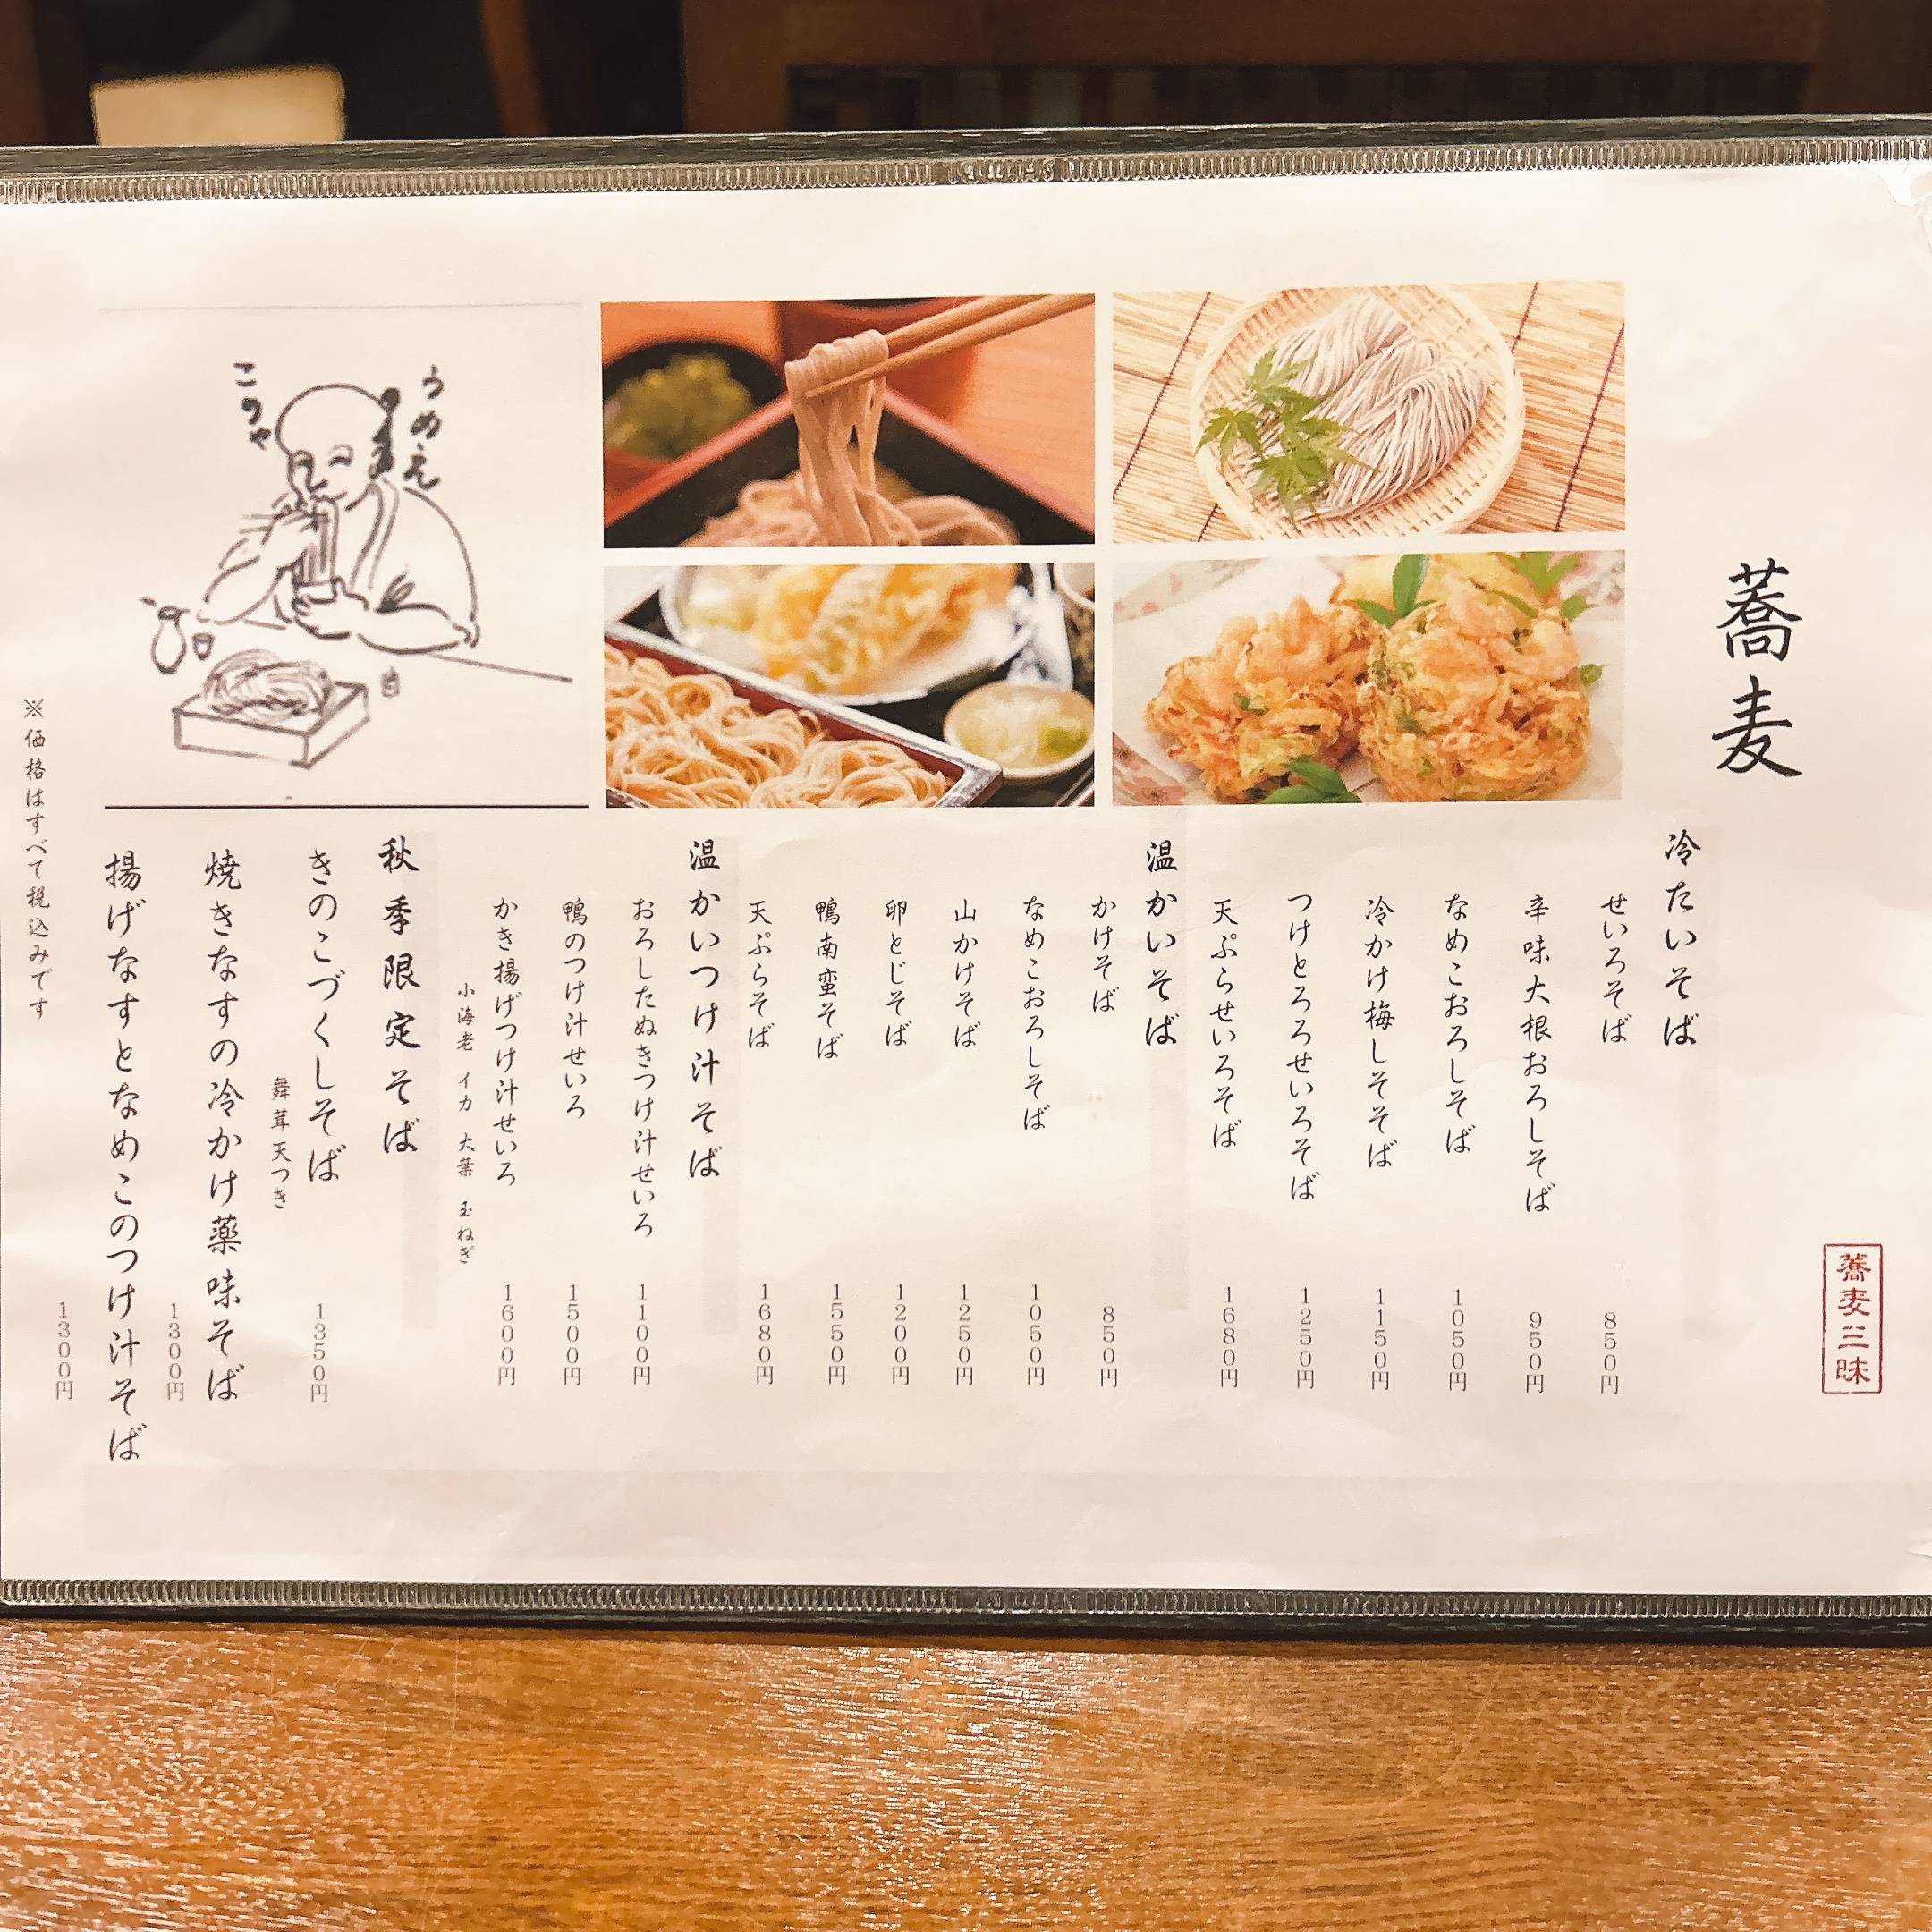 蕎麦
蕎麦三昧
冷たいそば
せいろそば 850円
辛味大根おろしそば 950円
なめこおろしそば 1050円
冷かけ梅しそそば 1150円
つけとろろせいろそば 1250円
天ぷらせいろそば 1680円
温かいそば
かけそば 850円
なめこおろしそば 1050円
山かけそば 1250円
卵とじそば 1200円
鴨南蛮そば 1550円
天ぷらそば 1680円
温かいつけ汁そば
おろしたぬきつけ汁せいろ 1100円
鴨のつけ汁せいろ 1500円
かき揚げつけ汁せいろ 1600円
小海老 イカ 大葉 玉ねぎ
秋季限定そば
きのこづくしそば 1350円
舞茸天つき
焼きなすの冷かけ薬味そば 1300円
揚げなすとなめこのつけ汁そば 1300円
※価格はすべて税込みです
うめえ
こりゃ